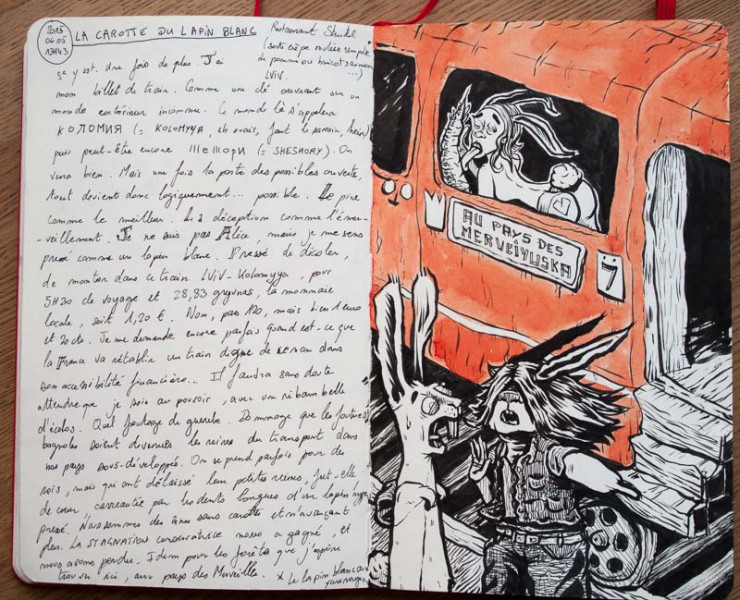 2015
06.05
13H43
LA CAROTTE DU LAPIN BLANC
Restaurant
(
de pomme ou haricot
LVIV
Ça y est. Une fois de plus. J'ai
mon billet de train. Comme une clé ouvrant sur un
monde extérieur inconnu. Ce monde là s'appelera
КОЛОМИЯ (= KOLOMYYA, eh ouais, faut le savoir, hein)
puis peut-être encore Шешори (= SHESHORY). On
verra bien. Mais une fois la porte des possibles ouverte,
tout devient donc logiquement... possible. Le pire
comme le meilleur. La déception comme l'émer-
-veillement. Je ne suis pas Alice, mais je me sens
pressé comme un lapin blanc. Pressé de décoler,
de monter dans ce train LVIV-Kolomyya, pour
5H30 de voyage et 28,83 gryvnas, la monnaie
locale, soit 1,20 €. Non, pas 120, mais bien 1 euro
et 20 cts. Je me demande encore parfois quand est-ce que
la France va rétablir un train digne de ce nom dans
son accessibilité financière... Il faudra sans doute
attendre que je sois au pouvoir, avec une ribambelle
d'écolos. Quel foutage de gueule. Dommage que les foutues
bagnoles soient devenues les reines du transport dans
nos pays sous-développés. On se prend parfois pour des
rois, mais qui ont délaissé leur petite reine, fut-elle
de cœur, carreautée par les dents longues d'un lapin
pressé. Nous sommes des ânes sans carotte et n'avançant
plus. La STAGNATION conservatrice nous a gagné, et
nous avons perdu. Idem pour les forêts que j'espère
trouver ici, aux pays des Merveille.
* Le lapin blanc
AU PAYS DES
MERVEIYUSKA
7